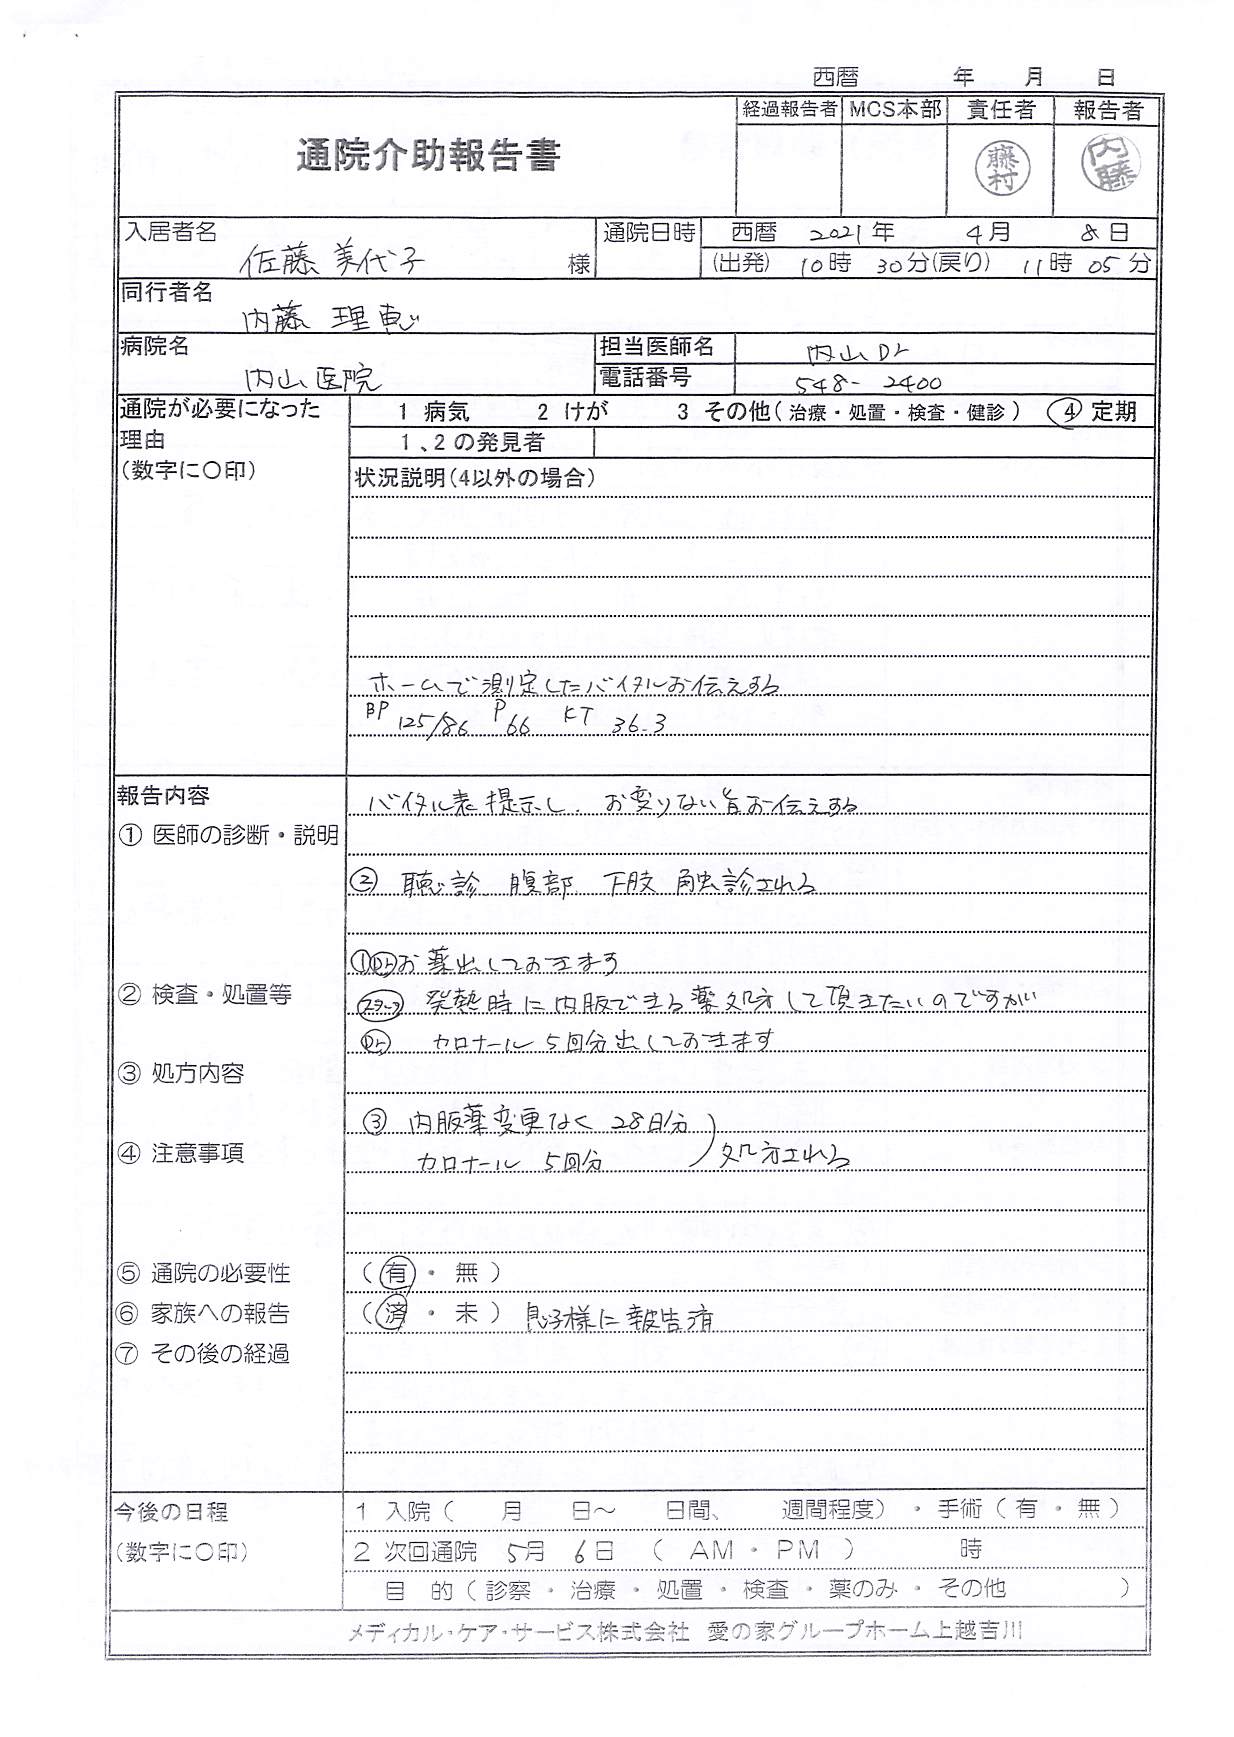 西暦 年 月 日
通院介助報告書
経過報告者 MCS本部 責任者 報告者
藤村 内藤
入居者名 佐藤 美代子 様
通院日時 西暦 2021年 4月 8日
(出発) 10時 30分(戻り) 11時 05分
同行者名 内藤 理恵
病院名 内山医院
担当医師名 内山Dr
電話番号 548-2400
通院が必要になった理由
(数字に〇印)
1 病気 2 けが 3 その他(治療・処置・検査・健診) ④ 定期
1、2の発見者
状況説明(4以外の場合)
ホームで測定したバイタルお伝えする
BP 125/86 P 66 KT 36.3
報告内容
バイタル表提示し、お変りない旨お伝えする
① 医師の診断・説明
② 聴診 腹部 下肢 触診される
①Drお薬出しておきます
② 検査・処置等
スタッフ 発熱時に内服できる薬処方して頂きたいのですが
Dr カロナール 5回分出しておきます
③ 処方内容
③ 内服薬変更なく 28日分
④ 注意事項
カロナール 5回分 処方される
⑤ 通院の必要性 (有・無)
⑥ 家族への報告 (済・未) 息子様に報告済
⑦ その後の経過
今後の日程
(数字に〇印)
1 入院( 月 日～ 日間、 週間程度)・手術(有・無)
2 次回通院 5月 6日 (AM・PM) 時
目 的(診察・治療・処置・検査・薬のみ・その他 )
メディカル・ケア・サービス株式会社 愛の家グループホーム上越吉川